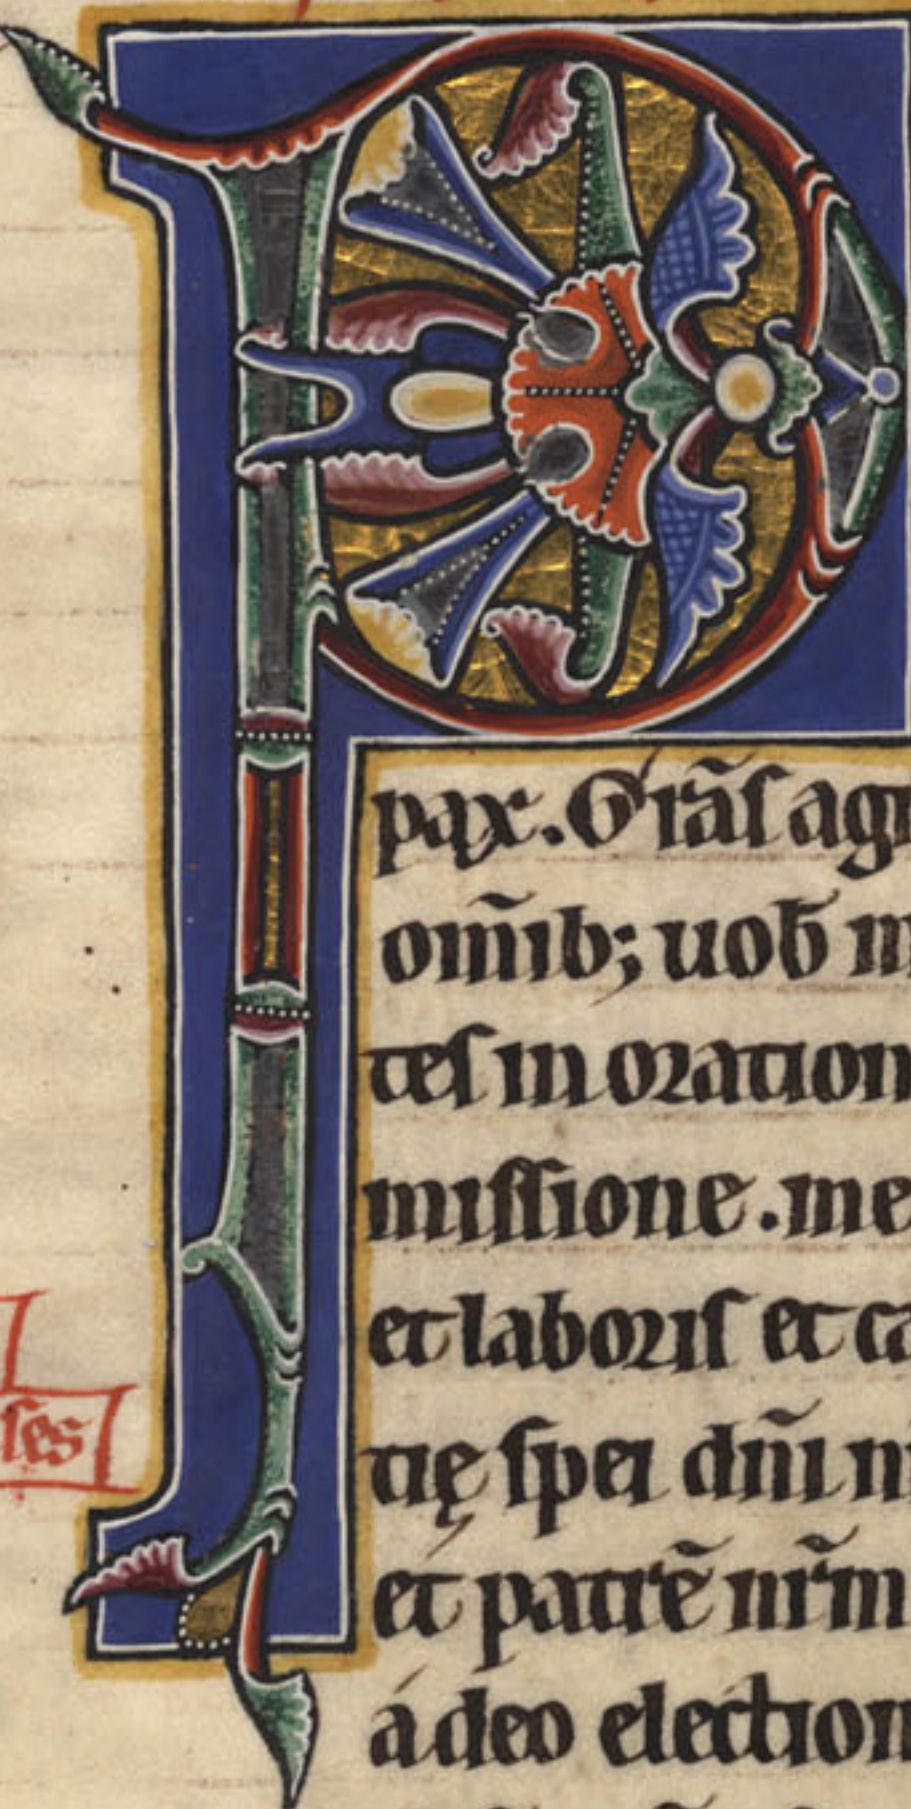 P
pax. Gr̄as agi
om̄ib; uob̄ m
tes in oration
missione. me
et laboris et ca
tię spei dn̄i n
et patrē nr̄m
a deo election
ses